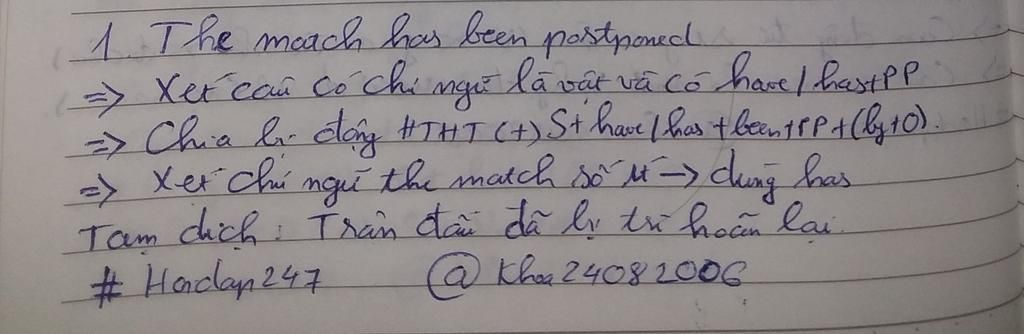 1. The match has been postponed
=> Xét câu có chủ ngữ là vật và có have/has+PP
=> Chia bị động HTHT (+) S+have/has+been+PP+(by+O).
=> Xét chủ ngữ the match số ít -> dùng has
Tạm dịch: Trận đấu đã bị trì hoãn lại.
# Hoidap247 @Khoa24082006